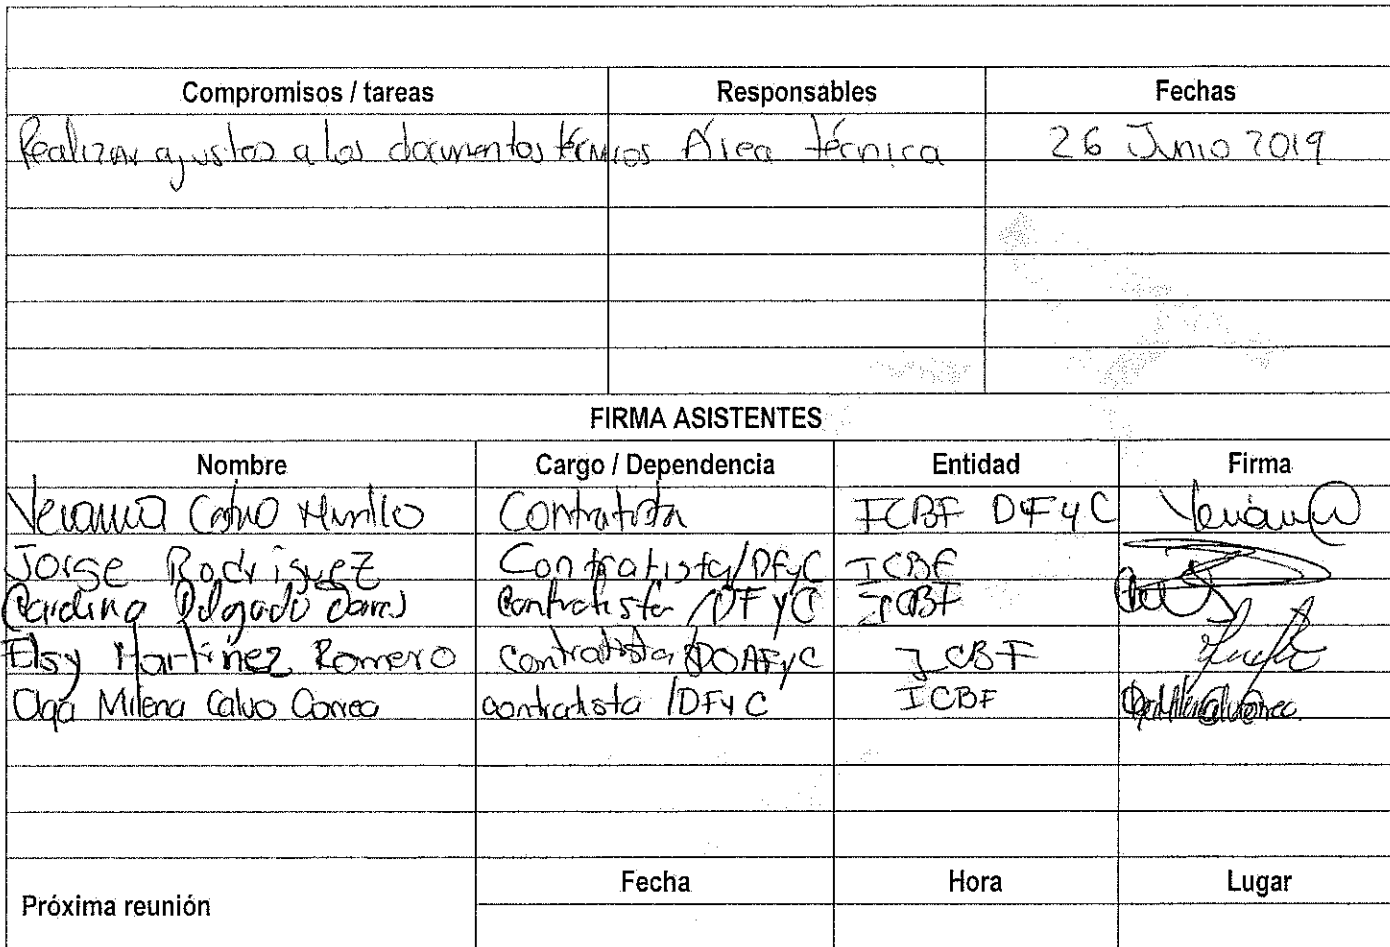 Compromisos / tareas Responsables Fechas
Realizar ajustes a los documentos técnicos Área técnica 26 Junio 2019
FIRMA ASISTENTES
Nombre Cargo / Dependencia Entidad Firma
Calvo Murillo Contratista ICBF DFyC
Jorge Rodriguez Contratista/DFyC ICBF
Carolina Delgado Contratista /DFYC ICBF
Elsy Martinez Romero Contratista/DOAFyC ICBF
Olga Milena Calvo Correa contratista /DFyC ICBF
Fecha Hora Lugar
Próxima reunión